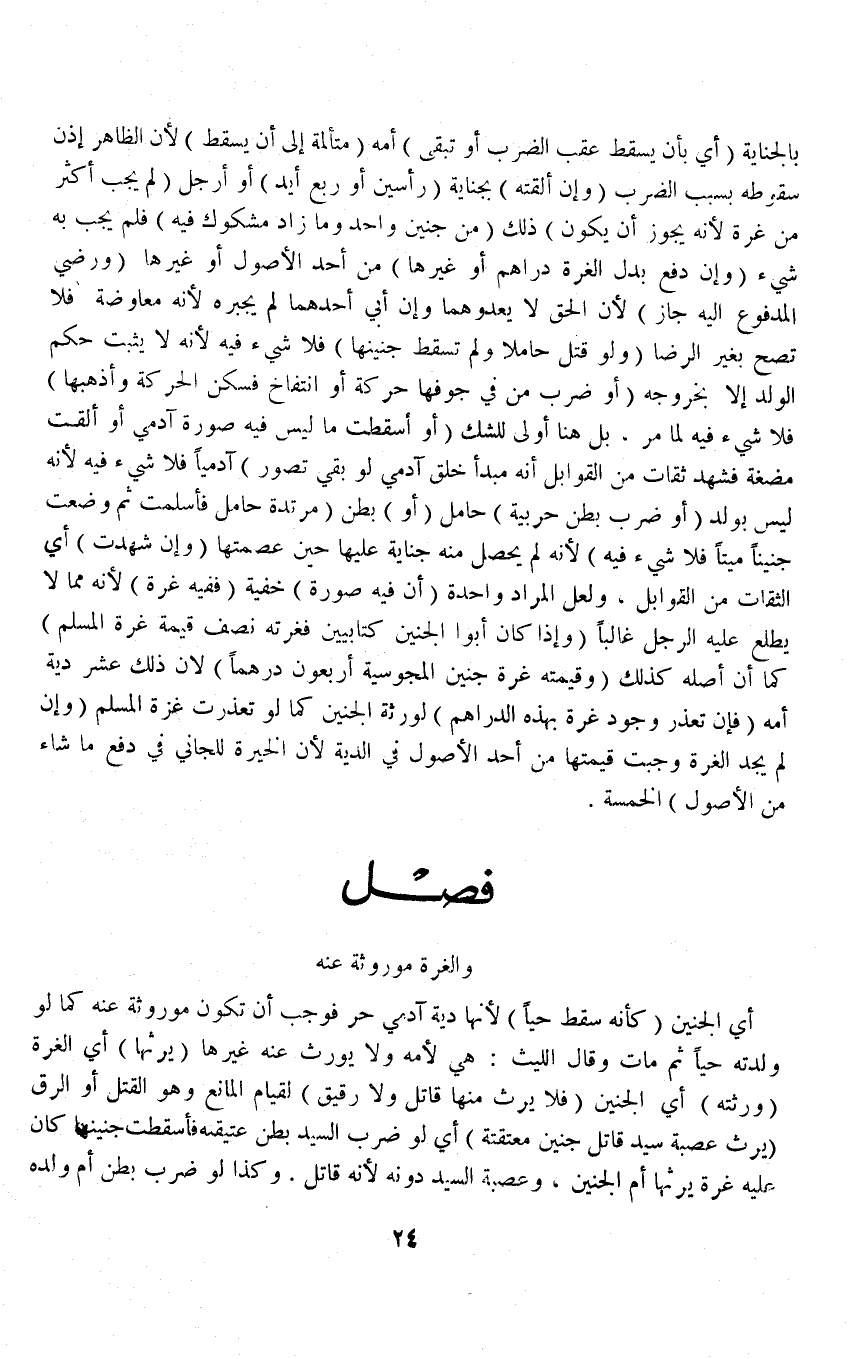 بالجناية ( أي بأن يسقط عقب الضرب أو تبقى ) أمه ( متألمة إلى أن يسقط ) لأن الظاهر إذن
سقوطه بسبب الضرب ( وإن ألقته ) بجناية ( رأسين أو ربع أيد ) أو أرجل ( لم يجب أكثر
من غرة لأنه يجوز أن يكون ) ذلك ( من جنين واحد وما زاد مشكوك فيه ) فلم يجب به
شيء ( وإن دفع بدل الغرة دراهم أو غيرها ) من أحد الأصول أو غيرها ( ورضي
المدفوع اليه جاز ) لأن الحق لا يعدوهما وإن أبي أحدهما لم يجبره لأنه معاوضة فلا
تصح بغير الرضا ( ولو قتل حاملا ولم تسقط جنينها ) فلا شيء فيه لأنه لا يثبت حكم
الولد إلا بخروجه ( أو ضرب من في جوفها حركة أو انتفاخ فسكن الحركة وأذهبها )
فلا شيء فيه لما مر . بل هنا أولى للشك ( أو أسقطت ما ليس فيه صورة آدمي أو ألقت
مضغة فشهد ثقات من القوابل أنه مبدأ خلق آدمي لو بقي تصور ) آدمياً فلا شيء فيه لأنه
ليس بولد ( أو ضرب بطن حربية ) حامل ( أو ) بطن ( مرتدة حامل فأسلمت ثم وضعت
جنيناً ميتاً فلا شيء فيه ) لأنه لم يحصل منه جناية عليها حين عصمتها ( وإن شهدت ) أي
الثقات من القوابل ، ولعل المراد واحدة ( أن فيه صورة ) خفية ( ففيه غرة ) لأنه مما لا
يطلع عليه الرجل غالباً ( وإذا كان أبوا الجنين كتابيين فغرته نصف قيمة غرة المسلم )
كما أن أصله كذلك ( وقيمته غرة جنين المجوسية أربعون درهماً ) لان ذلك عشر دية
أمه ( فإن تعذر وجود غرة بهذه الدراهم ) لورثة الجنين كما لو تعذرت غزة المسلم ( وإن
لم يجد الغرة وجبت قيمتها من أحد الأصول في الدية لأن الخيرة للجاني في دفع ما شاء
من الأصول ) الخمسة .
فصل
والغرة موروثة عنه
أي الجنين ( كأنه سقط حياً ) لأنها دية آدمي حر فوجب أن تكون موروثة عنه كما لو
ولدته حياً ثم مات وقال الليث : هي لأمه ولا يورث عنه غيرها ( يرثها ) أي الغرة
( ورثته ) أي الجنين ( فلا يرث منها قاتل ولا رقيق ) لقيام المانع وهو القتل أو الرق
( يرث عصبة سيد قاتل جنين معتقتة ) أي لو ضرب السيد بطن عتيقته فأسقطت جنينها كان
عليه غرة يرثها أم الجنين ، وعصبة السيد دونه لأنه قاتل . وكذا لو ضرب بطن أم ولده
٢٤